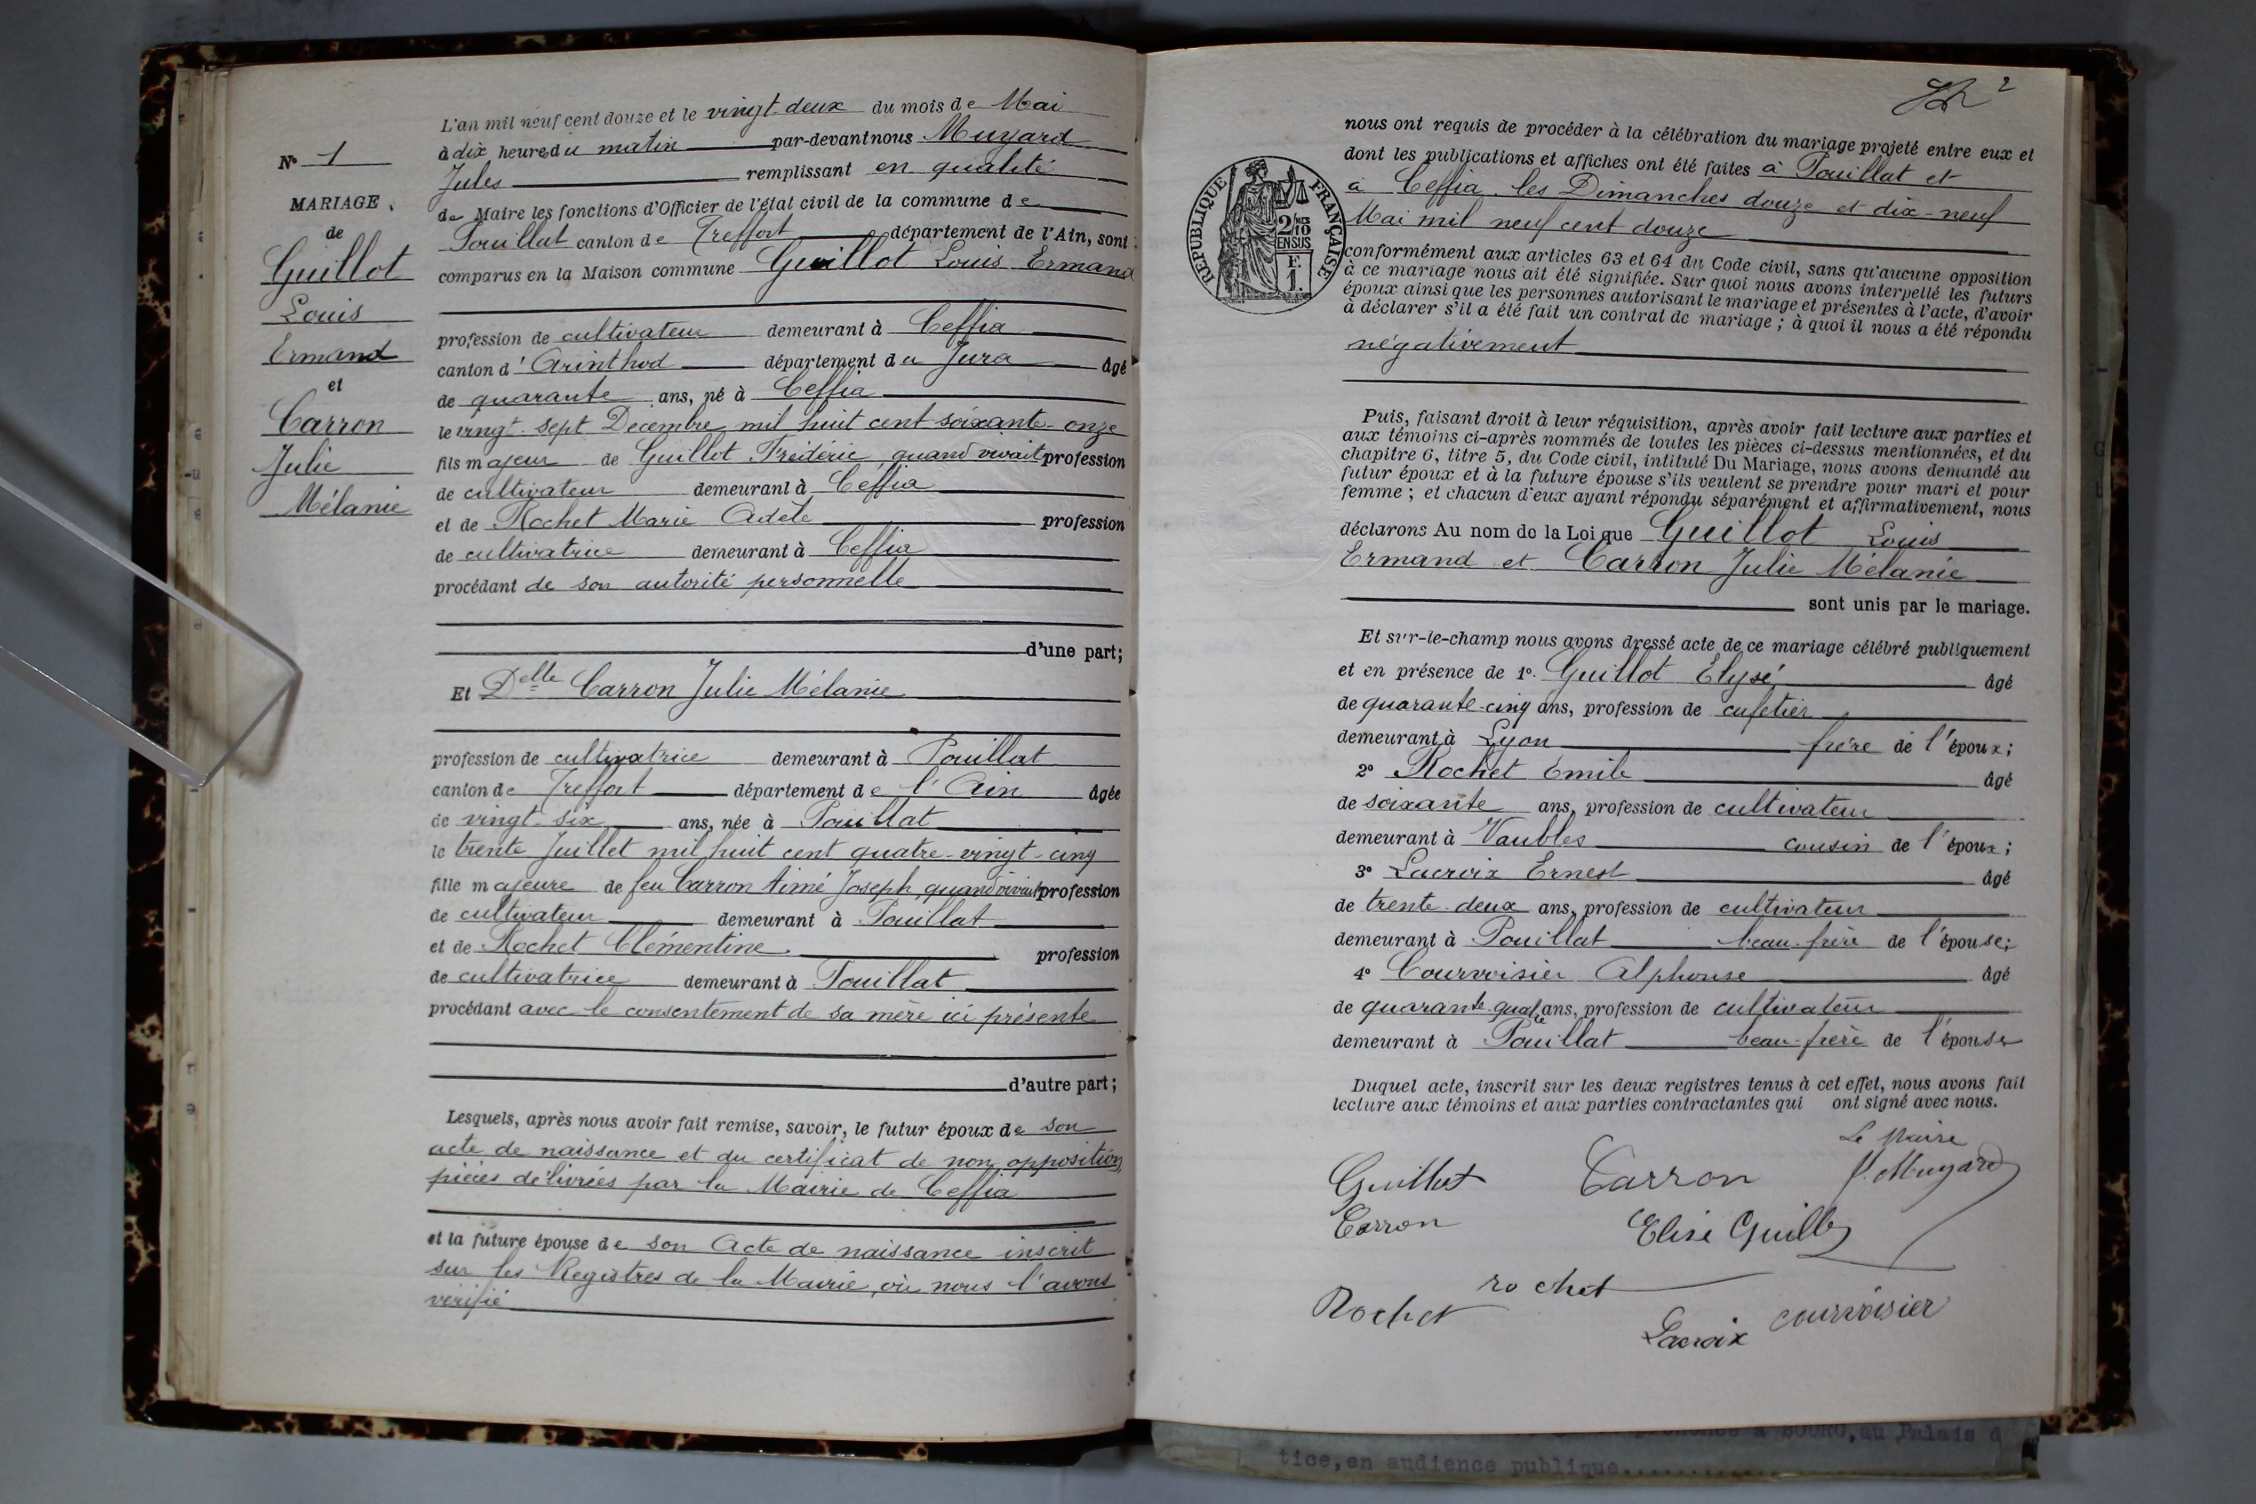 L'an mil neuf cent douze et le vingt-deux du mois de Mai
à dix heures du matin par-devant nous Muyard
Jules remplissant en qualité
de Maire les fonctions d'Officier de l'état civil de la commune de
Pouillat canton de Treffort département de l'Ain, sont
comparus en la Maison commune Guillot Louis Ermand
profession de cultivateur demeurant à Ceffia
canton d'Arinthod département du Jura âgé
de quarante ans, né à Ceffia
le vingt-sept Decembre mil huit cent soixante-onze
fils majeur de Guillot Frédéric quand vivait profession
de cultivateur demeurant à Ceffia
et de Rochet Marie Adèle profession
de cultivatrice demeurant à Ceffia
procédant de son autorité personnelle
d'une part;
Et Delle Carron Julie Mélanie
profession de cultivatrice demeurant à Pouillat
canton de Treffort département de l'Ain âgée
de vingt-six ans, née à Pouillat
le trente Juillet mil huit cent quatre-vingt-cinq
fille majeure de feu Carron Aimé Joseph, quand vivait profession
de cultivateur demeurant à Pouillat
et de Rochet Clémentine profession
de cultivatrice demeurant à Pouillat
procédant avec le consentement de sa mère ici présente
d'autre part;
Lesquels, après nous avoir fait remise, savoir, le futur époux de son
acte de naissance et du certificat de non opposition,
pièces délivrées par la Mairie de Ceffia
et la future épouse de son Acte de naissance inscrit
sur les Registres de la Mairie, où nous l'avons
vérifié
N° 1
MARIAGE
de
Guillot
Louis
Ermand
et
Carron
Julie
Mélanie
2
RÉPUBLIQUE FRANÇAISE
2/10
EN SUS
F.
1.
nous ont requis de procéder à la célébration du mariage projeté entre eux et
dont les publications et affiches ont été faites à Pouillat et
à Ceffia les Dimanches douze et dix-neuf
Mai mil neuf cent douze
conformément aux articles 63 et 64 du Code civil, sans qu'aucune opposition
à ce mariage nous ait été signifiée. Sur quoi nous avons interpellé les futurs
époux ainsi que les personnes autorisant le mariage et présentes à l'acte, d'avoir
à déclarer s'il a été fait un contrat de mariage; à quoi il nous a été répondu
négativement
Puis, faisant droit à leur réquisition, après avoir fait lecture aux parties et
aux témoins ci-après nommés de toutes les pièces ci-dessus mentionnées, et du
chapitre 6, titre 5, du Code civil, intitulé Du Mariage, nous avons demandé au
futur époux et à la future épouse s'ils veulent se prendre pour mari et pour
femme; et chacun d'eux ayant répondu séparément et affirmativement, nous
déclarons Au nom de la Loi que Guillot Louis
Ermand et Carron Julie Mélanie
sont unis par le mariage.
Et sur-le-champ nous avons dressé acte de ce mariage célébré publiquement
et en présence de 1° Guillot Elysé âgé
de quarante-cinq ans, profession de cafetier
demeurant à Lyon frère de l'époux;
2° Rochet Emile âgé
de soixante ans, profession de cultivateur
demeurant à Vaubles cousin de l'époux;
3° Lacroix Ernest âgé
de trente-deux ans, profession de cultivateur
demeurant à Pouillat beau-frère de l'épouse;
4° Courvoisier Alphonse âgé
de quarante quatre ans, profession de cultivateur
demeurant à Pouillat beau-frère de l'épouse
Duquel acte, inscrit sur les deux registres tenus à cet effet, nous avons fait
lecture aux témoins et aux parties contractantes qui ont signé avec nous.
Le Maire
Guillot Carron J. Muyard
Carron Elisé Guillot
rochet
Rochet
Lacroix courvoisier
à BOURG, au Palais d
tice, en audience publique